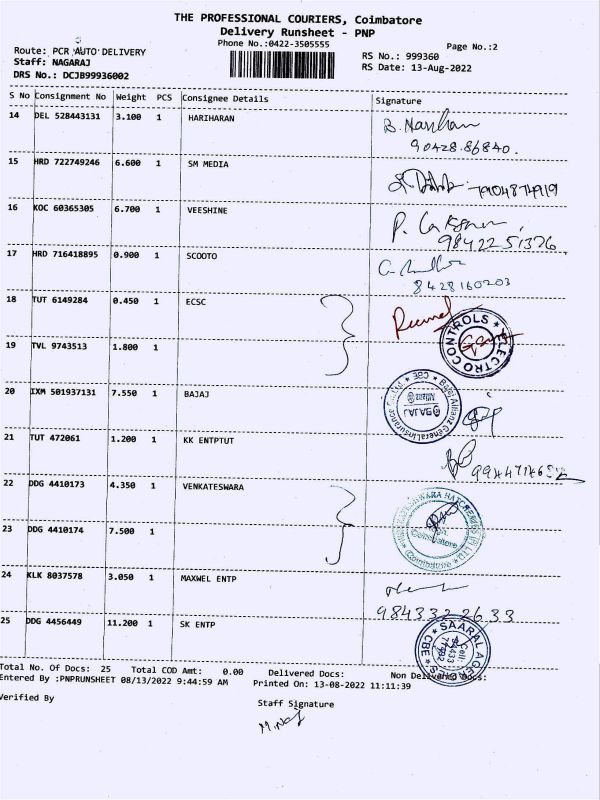 THE PROFESSIONAL COURIERS, Coimbatore
Delivery Runsheet - PNP
Phone No.:0422-3505555
Page No.:2
Route: PCR AUTO DELIVERY
Staff: NAGARAJ
DRS No.: DCJB99936002
RS No.: 999360
RS Date: 13-Aug-2022
S No Consignment No Weight PCS Consignee Details Signature
14 DEL 528443131 3.100 1 HARIHARAN B. Hariharan
90428.86840.
15 HRD 722749246 6.600 1 SM MEDIA 7904874919
16 KOC 60365305 6.700 1 VEESHINE
98422 51376
17 HRD 716418895 0.900 1 SCOOTO
8428160203
18 TUT 6149284 0.450 1 ECSC Received
ELECTRO CONTROLS
19 TVL 9743513 1.800 1
20 IXM 501937131 7.550 1 BAJAJ
Bajaj Allianz General Insurance CBE
BAJAJ Allianz
21 TUT 472061 1.200 1 KK ENTPTUT
22 DDG 4410173 4.350 1 VENKATESWARA
HATCHERIES (P) LTD Coimbatore
23 DDG 4410174 7.500 1
24 KLK 8037578 3.050 1 MAXWEL ENTP
984332 2633
25 DDG 4456449 11.200 1 SK ENTP
SAARAL CBE
Total No. Of Docs: 25 Total COD Amt: 0.00 Delivered Docs: Non Delivered Docs:
Entered By :PNPRUNSHEET 08/13/2022 9:44:59 AM Printed On: 13-08-2022 11:11:39
Verified By Staff Signature